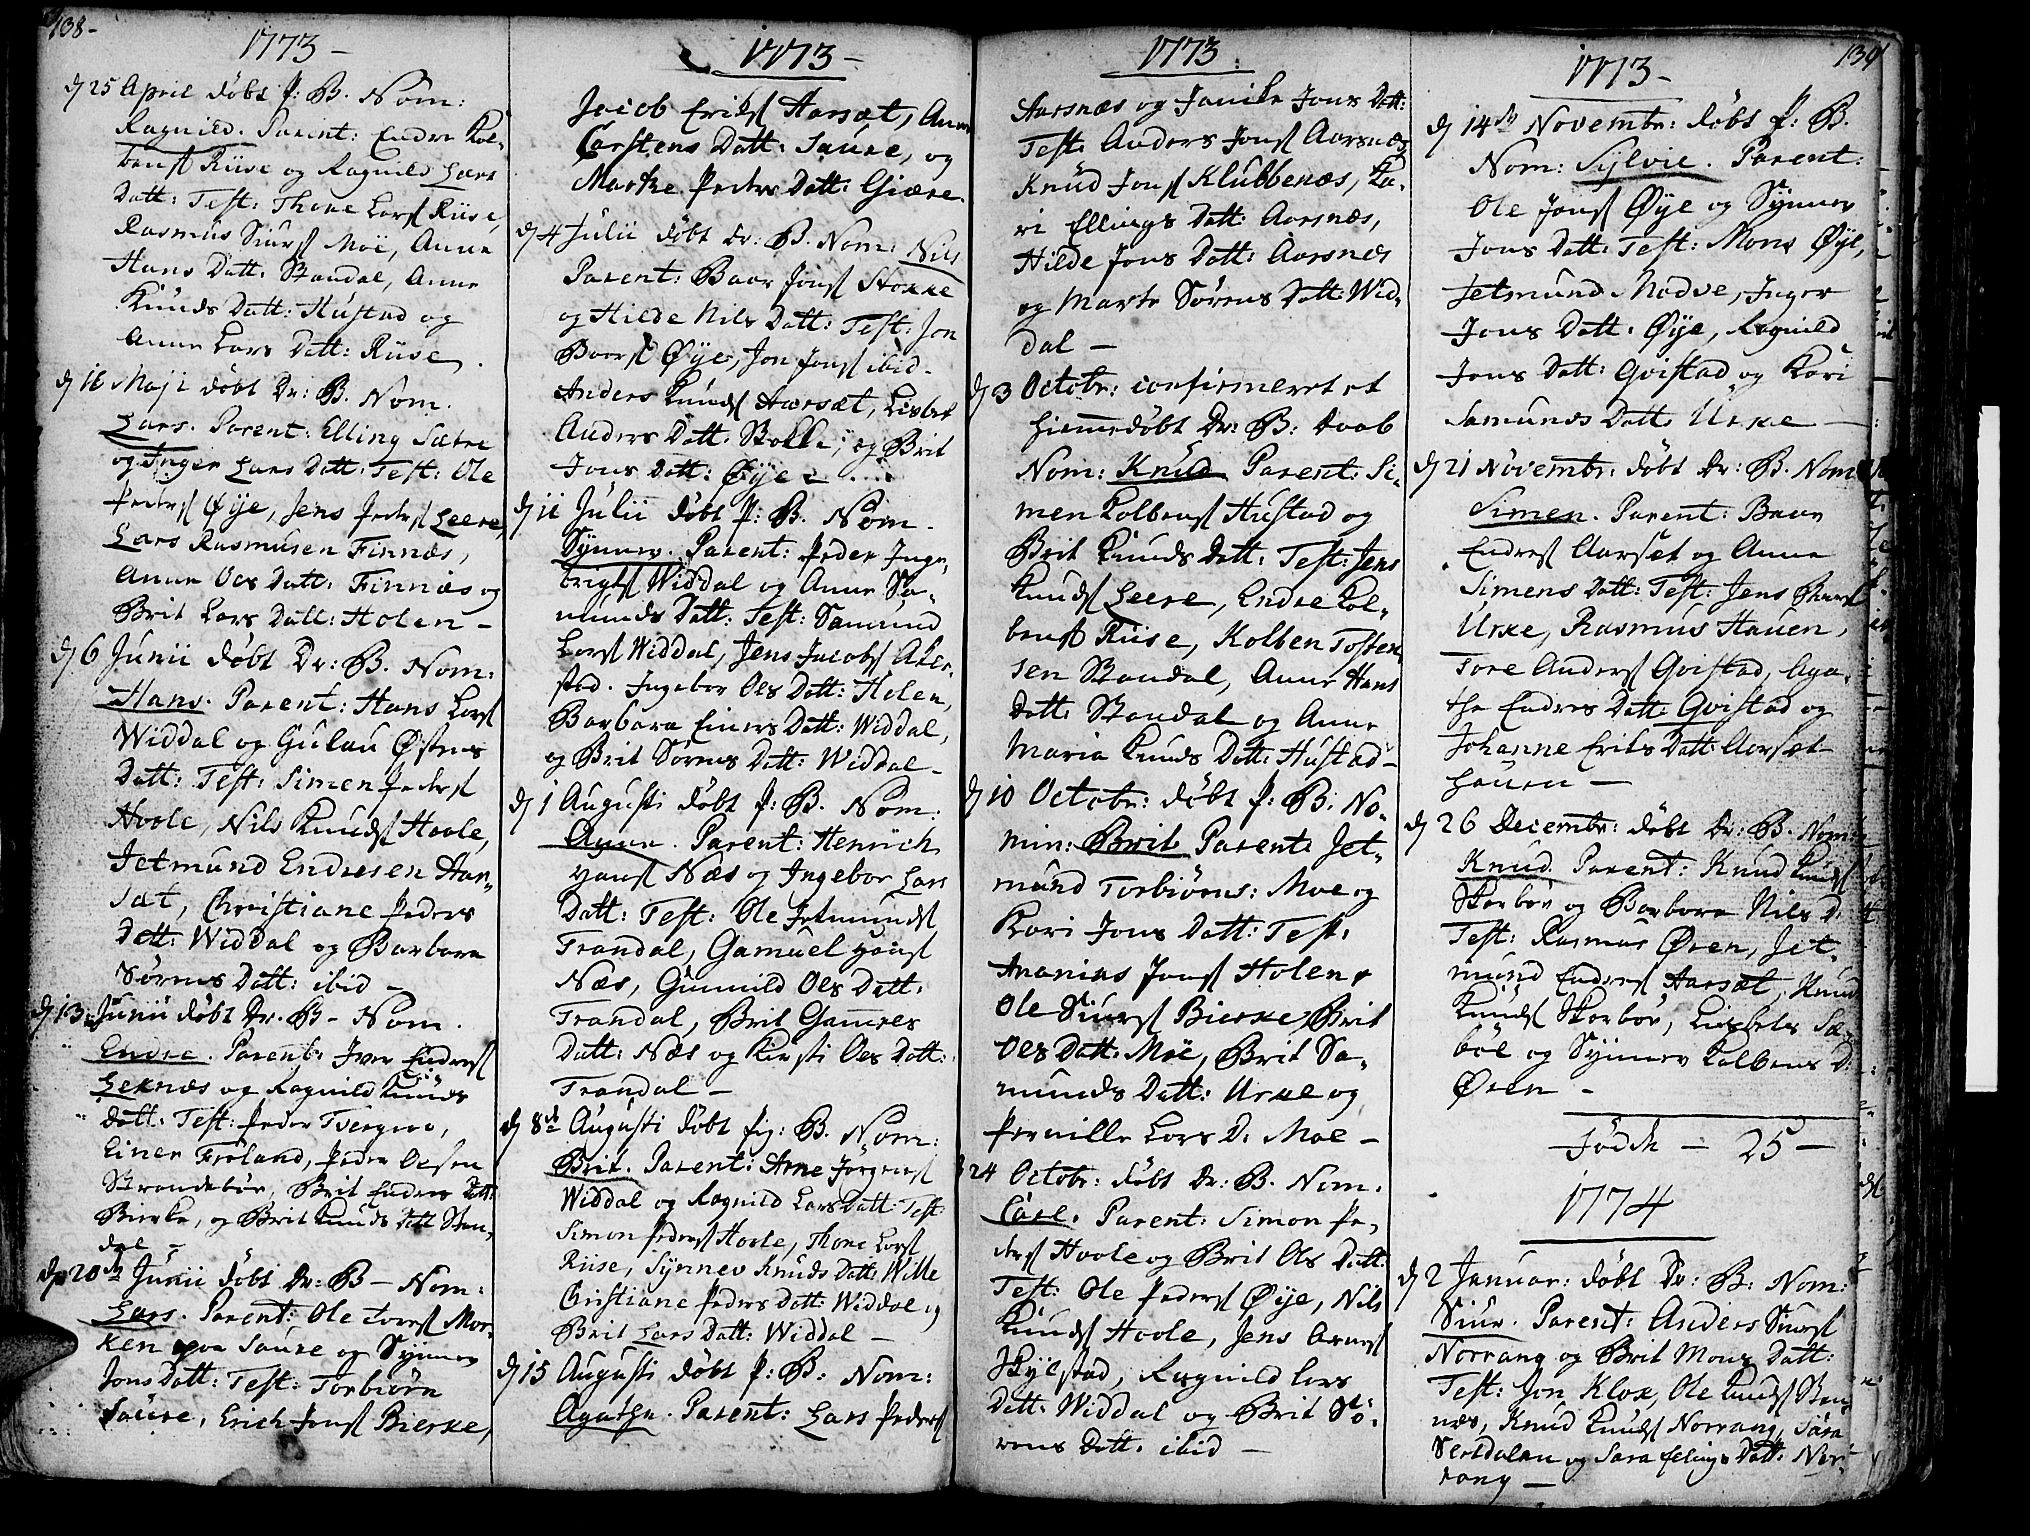 138-
1773 -
d 25 April døbt P: B. Nom:
Ragnild. Parent: Endre Kol-
bens Riise og Ragnild Lars
Datt: Test: Thore Lars Riise,
Rasmus Siurs Moe, Anne
Hans Datt: Standal, Anne
Knuds Datt: Hustad og
Anne Lars Datt: Riise.
d 16 Maji døbt Dr: B. Nom.
Lars. Parent: Elling Sætre
og Inger Lars Datt: Test: Ole
Peders Øye, Jens Peders Leere,
Lars Rasmusen Finnæs,
Anne Oes Datt: Finnæs og
Brit Lars Datt: Holen -
d 6 Junii døbt Dr: B. Nom:
Hans. Parent: Hans Lars
Widdal og Gulau Østens
Datt: Test: Simen Peders
Hoole, Nils Knuds Hoole,
Jetmund Endresen Aar-
sæt, Christiane Peders
Datt: Widdal og Barbara
Sørens Datt: ibid -
d 13 Junii døbt Dr. B- Nom.
Endre. Parent: Iver Endres
Leknæs og Ragnild Knuds
Datt: Test: Peder
Einer Frøland, Peder Olsen
Strandebøe, Brit Endres Datt:
Bierke, og Brit Knuds Datt Stan-
dal -
d 20de Junii døbt Dr: B- Nom:
Lars. Parent: Ole Lars Mor-
ken paa Saure og Synnev
Jons Datt: Test: Torbiørn
Saure, Erich Jons Bierke,
1773 -
Jacob Eriks Aarsæt, Anne
Carstens Datt: Saure, og
Marte Peders Datt: Giære.
d 4 Julii døbt Dr: B. Nom: Nils
Parent: Baar Jons Stokke
og Hilde Nils Datt: Test: Jon
Baars Øye, Jon Jons ibid-
Anders Knuds Aarsæt, Lisbet
Anders Datt: Stokke, og Brit
Jons Datt: Øye -
d 11 Julii døbt P: B. Nom.
Synnev. Parent: Peder Inge-
brigts Widdal og Anne Sa-
munds Datt: Test: Samund
Lars Widdal, Jens Jacobs Aker-
stad. Ingebor Oes Datt: Holen,
Barbara Einers Datt: Widdal,
og Brit Sørens Datt: Widdal-
d 1 Augusti døbt P: B. Nom:
Agnee. Parent: Henrich
Hans Næs og Ingebor Lars
Datt: Test: Ole Jetmunds
Trandal, Gamuel Hans
Næs, Gunnild Oes Datt:
Trandal, Brit Gamres
Datt: Næs og Kirsti Oes Datt:
Trandal -
d 8de Augusti døbt P: B. Nom:
Brit. Parent: Arne Jørgens
Widdal og Ragnild Lars Datt: Test:
Simon Peders Hoole, Thore Lars
Riise, Synnev Knuds Datt: Wille
Christiane Peders Datt: Widdal og
Brit Lars Datt: Widdal -
d 15 Augusti døbt P: B: Nom:
Agathe. Parent: Lars Peders
1773.
Aarsnæs og Janike Jons Datt:
Test: Anders Jons Aarsnæs
Knud Jons Klubbenæs, Ka-
ri Ellings Datt: Aarsnæs,
Hilde Jons Datt: Aarsnæs
og Marte Sørens Datt: Wid-
dal -
d 3 Octobr: confirmeret et
Hiemmedøbt Dr: B: Daab
Nom: Knud Parent: Si-
men Kolbens Hustad og
Brit Knuds Datt: Test: Jens
Knuds Leere, Endre Kol-
bens Riise, Kolben Tosten-
sen Standal, Anne Hans
Datt: Standal og Anne
Maria Knuds Datt: Hustad-
d 10 Octobr: døbt P: B: No-
min: Brit Parent: Jet-
mund Torbiørns: Moe og
Kari Jons Datt: Test:
Ananias Jons Holen,
Ole Siurs Bierke, Brit
Oes Datt: Moe, Brit Sa-
munds Datt: Urke og
Pernille Lars D: Moe -
24 Octobr: døbt Dr: B. Nom:
Carl. Parent: Simon Pe-
ders Hoole og Brit Ols Datt:
Test: Ole Peders Øye, Nils
Knuds Hoole, Jens Arnes
Skylstad, Ragnild Lars
Datt: Widdal og Brit Sø-
rens Datt: ibid -
139
1773 -
d 14de Novembr: døbt P: B.
Nom: Sylvie. Parent:
Ole Jons Øye og Synnev
Jons Datt: Test: Mons Øye,
Jetmund Madve, Inger
Jons Datt: Øye, Ragnild
Jons Datt: Qvistad og Kari
Samunds Datt: Urke -
d 21 Novembr: døbt Dr: B. Nom
Simen. Parent: Baar
Endres Aarset og Anne
Simens Datt: Test: Jens
Urke, Rasmus Hauen,
Tore Anders Qvistad, Aga-
the Endres Datt: Qvistad og
Johanne Eriks Datt: Aarsæt-
Hauen -
d 26 Decembr: døbt Dr: B. Nom:
Knud. Parent: Knud Knuds
Skorbøe og Barbara Nils D:
Test: Rasmus Øren, Jet-
mund Endres Aarsæt, Knud
Knuds Skorbøe, Lisbets Sæ-
bøe og Synnev Kolbens D:
Øren -
Fødte - 25 -
1774
d 2 Januar: døbt Dr: B: Nom:
Siur. Parent: Anders Siurs
Norrang og Brit Mons Datt:
Test: Jon Klok, Ole Knuds Sten-
næs, Knud Knuds Norrang, Sara
og Sara Ellings Datt: Nor-
rang -